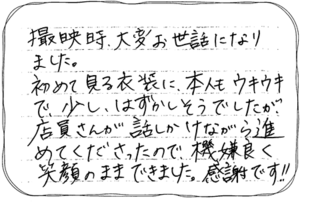 撮映時、大変お世話になり
ました。
初めて見る衣装に、本人も ウキウキ
で、少し、はずかしそうでしたが
店員さんが 話しかけながら進
めてくださったので、機嫌良く
笑顔のままできました。感謝です!!